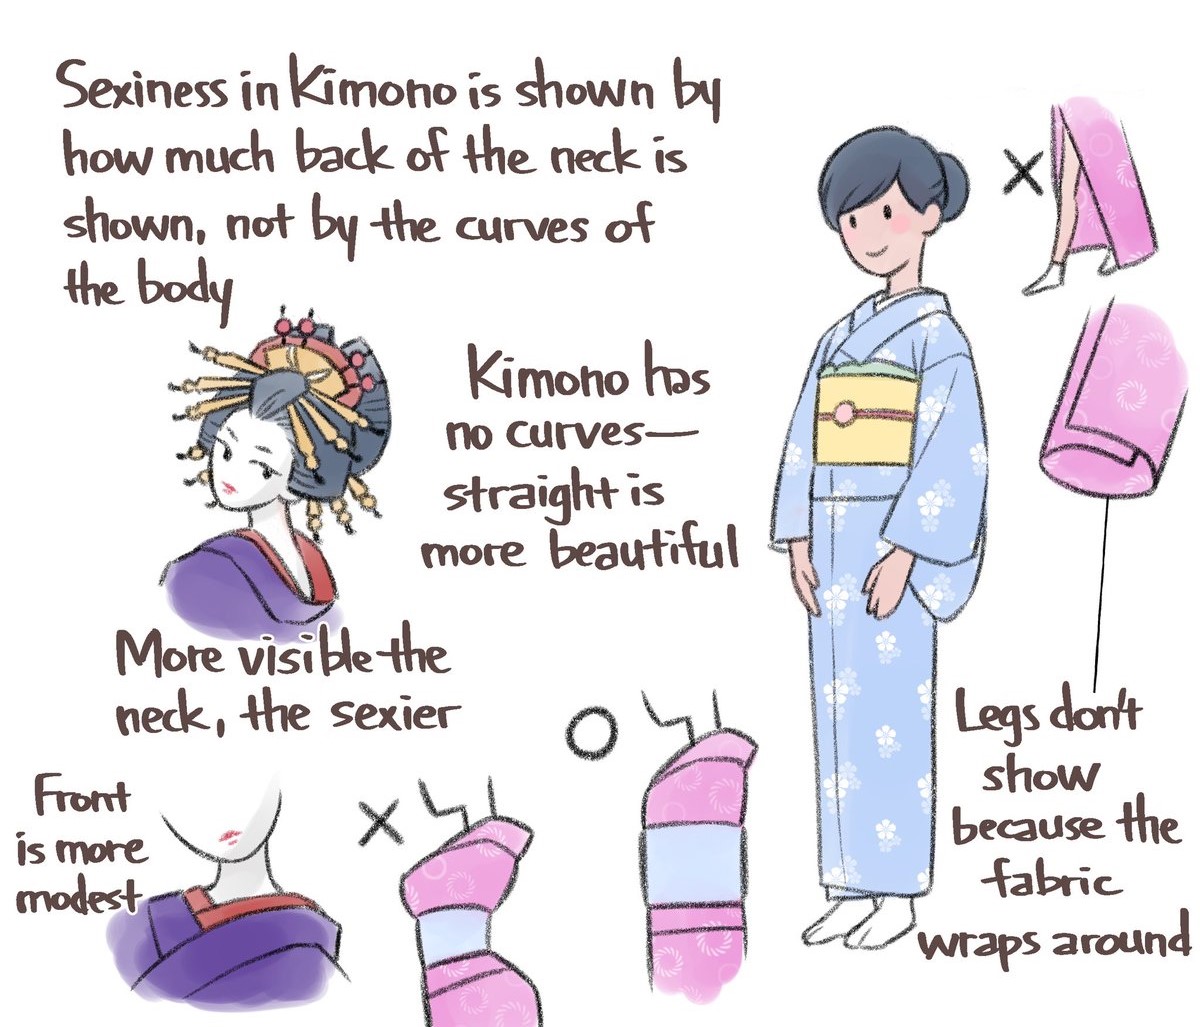 Sexiness in Kimono is shown by
how much back of the neck is
shown, not by the curves of
the body
Kimono has
no curves—
straight is
more beautiful
More visible the
neck, the sexier
Front
is more
modest
Legs don't
show
because the
fabric
wraps around